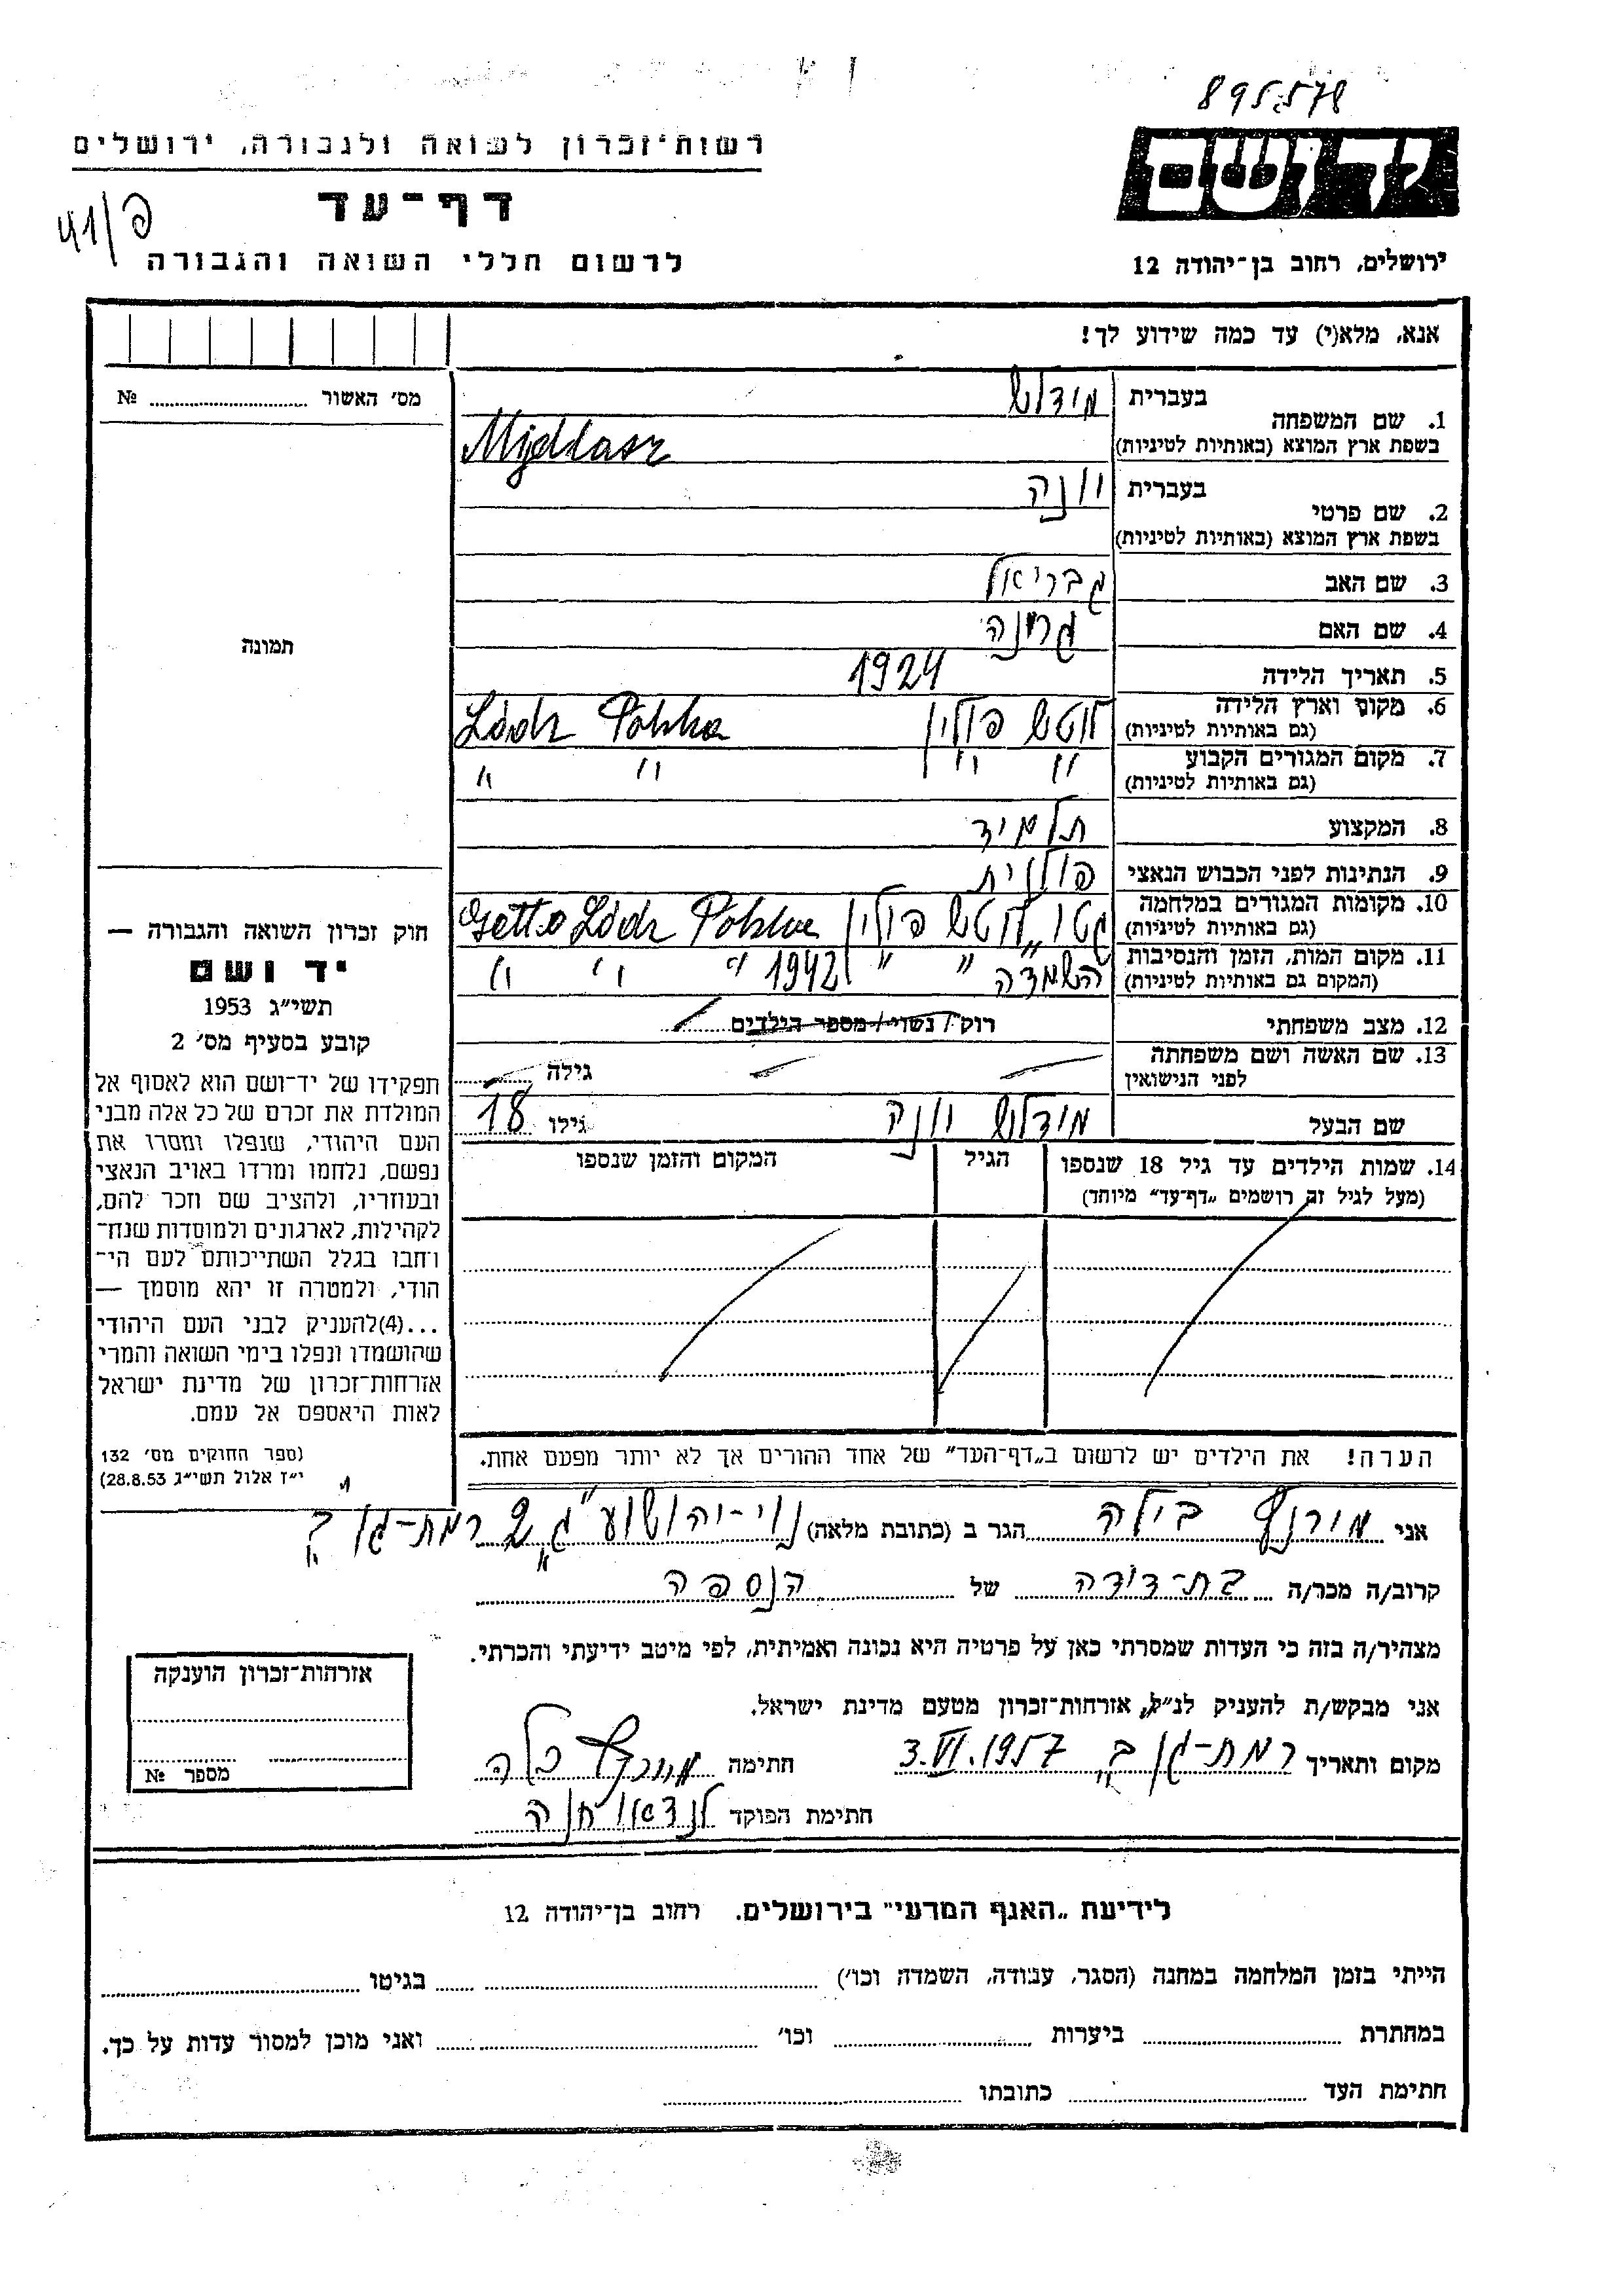 895578
רשות־זכרון לשואה ולגבורה, ירושלים
יד ושם
דף־עד
פ/41
לרשום חללי השואה והגבורה
ירושלים, רחוב בן־יהודה 12
אנא, מלא(י) עד כמה שידוע לך!
מס׳ האשור № ....................
1. שם המשפחה בעברית מודלש
בשפת ארץ המוצא (באותיות לטיניות) Mydlasz
2. שם פרטי בעברית יונה
בשפת ארץ המוצא (באותיות לטיניות)
3. שם האב גבריאל
4. שם האם
5. תאריך הלידה 1924
6. מקום וארץ הלידה (גם באותיות לטיניות) לוטש פולין Lódz Polska
7. מקום המגורים הקבוע (גם באותיות לטיניות) " " " "
8. המקצוע תלמיד
9. הנתינות לפני הכבוש הנאצי פולנית
10. מקומות המגורים במלחמה (גם באותיות לטיניות) גטו "לוטש פולין Getto Lódz Polska
11. מקום המות, הזמן והנסיבות (המקום גם באותיות לטיניות) השמדה " " 1942 " " "
12. מצב משפחתי רוק / נשוי / מספר הילדים
13. שם האשה ושם משפחתה לפני הנישואין גילה
שם הבעל מודלש יונה גילו 18
14. שמות הילדים עד גיל 18 שנספו הגיל המקום והזמן שנספו
(מעל לגיל זה רושמים „דף־עד” מיוחד)
הערה! את הילדים יש לרשום ב„דף־העד” של אחד ההורים אך לא יותר מפעם אחת.
תמונה
חוק זכרון השואה והגבורה —
יד ושם
תשי״ג 1953
קובע בסעיף מס׳ 2
תפקידו של יד־ושם הוא לאסוף אל
המולדת את זכרם של כל אלה מבני
העם היהודי, שנפלו ומסרו את
נפשם, נלחמו ומרדו באויב הנאצי
ובעוזריו, ולהציב שם וזכר להם,
לקהילות, לארגונים ולמוסדות שנח־
רבו בגלל השתייכותם לעם הי־
הודי, ולמטרה זו יהא מוסמך —
...(4)להעניק לבני העם היהודי
שהושמדו ונפלו בימי השואה והמרי
אזרחות־זכרון של מדינת ישראל
לאות היאספם אל עמם.
(ספר החוקים מס׳ 132
י״ז אלול תשי״ג 28.8.53)
אני בילה הגר ב (כתובת מלאה) נוי-יהושע רמת-גן ב'
קרוב/ה מכר/ה בת-דודה של הנספה
מצהיר/ה בזה כי העדות שמסרתי כאן על פרטיה היא נכונה ואמיתית, לפי מיטב ידיעתי והכרתי.
אני מבקש/ת להעניק לנ״ל, אזרחות־זכרון מטעם מדינת ישראל.
מקום ותאריך רמת-גן ב' 3.VI.1957 חתימה בלה
חתימת הפוקד לנדאו חנה
אזרחות־זכרון הוענקה
מספר №
לידיעת „האגף המדעי” בירושלים. רחוב בן־יהודה 12
הייתי בזמן המלחמה במחנה (הסגר, עבודה, השמדה וכו׳) בגיטו
במחתרת ביערות וכו׳ ואני מוכן למסור עדות על כך.
חתימת העד כתובתו